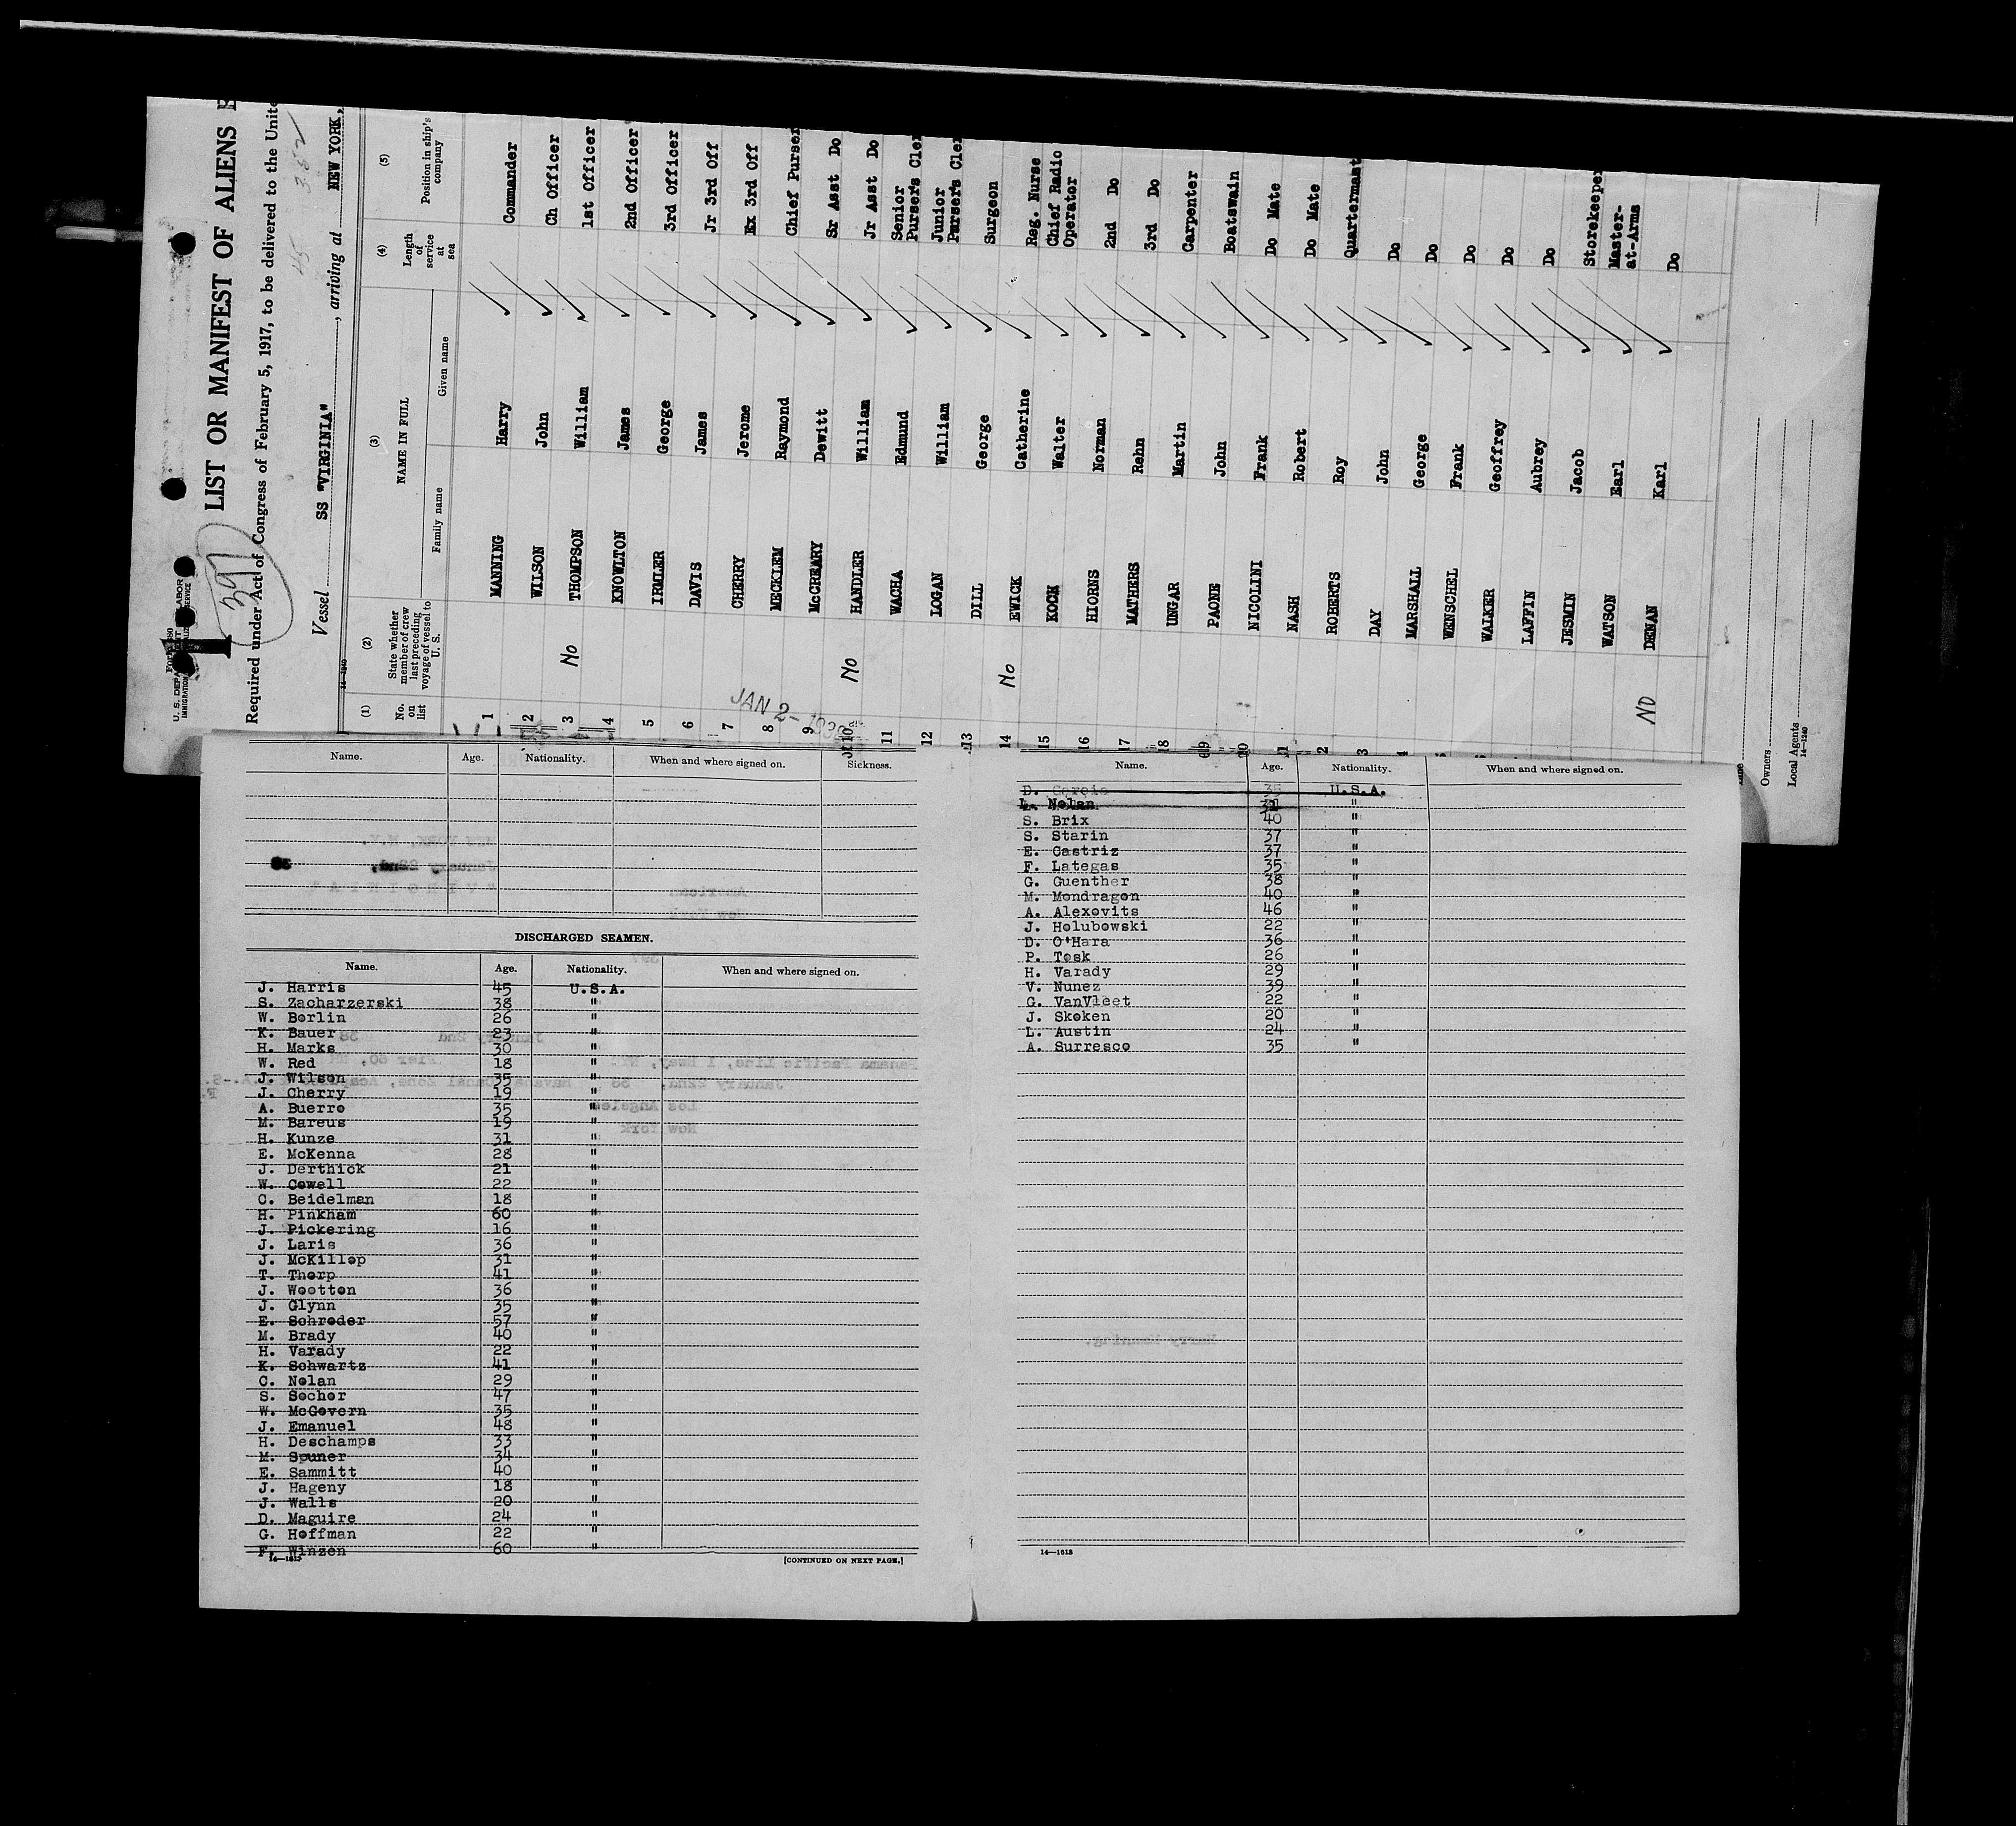 LIST OR MANIFEST OF ALIENS
Required under Act of Congress of February 5, 1917, to be delivered to the
39
Vessel SS "VIRGINIA", arriving at NEW YORK,
(1) (2) (3) (4) (5)
No. on list State whether member of crew last preceding voyage of vessel to U. S. NAME IN FULL Family name Given name Length of service at sea Position in ship's company
1 MANNING Harry Commander
2 WILSON John Ch Officer
3 No THOMPSON William 1st Officer
4 KNOWLTON James 2nd Officer
5 IRMLER George 3rd Officer
6 DAVIS James Jr 3rd Off
7 CHERRY Jerome Ex 3rd Off
8 MECKLEM Raymond Chief Purser
9 McCREARY Dewitt Sr Asst Do
10 No HANDLER William Jr Asst Do
11 WACHA Edmund Senior Purser's
12 LOGAN William Junior Purser's
13 DILL George Surgeon
14 No EWICK Catherine Reg. Nurse
15 KOCH Walter Chief Radio Operator
16 HIORNS Norman 2nd Do
17 MATHERS Rehn 3rd Do
18 UNGAR Martin Carpenter
19 PAONE John Boatswain
20 NICOLINI Frank Do Mate
NASH Robert Do Mate
ROBERTS Roy Quartermast
DAY John Do
MARSHALL George Do
WENSCHEL Frank Do
WALKER Geoffrey Do
LAFFIN Aubrey Do
JESMIN Jacob Storekeeper
WATSON Earl Master-at-Arms
NO DENAN Karl Do
JAN 2-
Owners
Local Agents
14-1240
Name. Age. Nationality. When and where signed on. Sickness.
DISCHARGED SEAMEN.
Name. Age. Nationality. When and where signed on.
J. Harris 45 U.S.A.
S. Zacharzerski 38 "
W. Borlin 26 "
K. Bauer 23 "
H. Marks 30 "
W. Red 18 "
J. Wilson 35 "
J. Cherry 19 "
A. Buerro 35 "
M. Bareus 19 "
H. Kunze 31 "
E. McKenna 28 "
J. Derthick 21 "
W. Cowell 22 "
C. Beidelman 18 "
H. Pinkham 60 "
J. Pickering 16 "
J. Laris 36 "
J. McKillop 31 "
T. Thorp 41 "
J. Wootton 36 "
J. Glynn 35 "
E. Schroder 57 "
M. Brady 40 "
H. Varady 22 "
K. Schwartz 41 "
C. Nolan 29 "
S. Sochor 47 "
W. McGovern 35 "
J. Emanuel 48 "
H. Deschamps 33 "
M. Spuner 34 "
E. Sammitt 40 "
J. Hageny 18 "
J. Walls 20 "
D. Maguire 24 "
G. Hoffman 22 "
F. Winzen 60 "
[CONTINUED ON NEXT PAGE.]
Name. Age. Nationality. When and where signed on.
D. 35 U.S.A.
L. Nolan 31 "
S. Brix 40 "
S. Starin 37 "
E. Castriz 37 "
F. Lategas 35 "
G. Guenther 38 "
M. Mondragon 40 "
A. Alexovits 46 "
J. Holubowski 22 "
D. O'Hara 36 "
P. Tosk 26 "
H. Varady 29 "
V. Nunez 39 "
G. VanVleet 22 "
J. Skoken 20 "
L. Austin 24 "
A. Surresco 35 "
14—1613